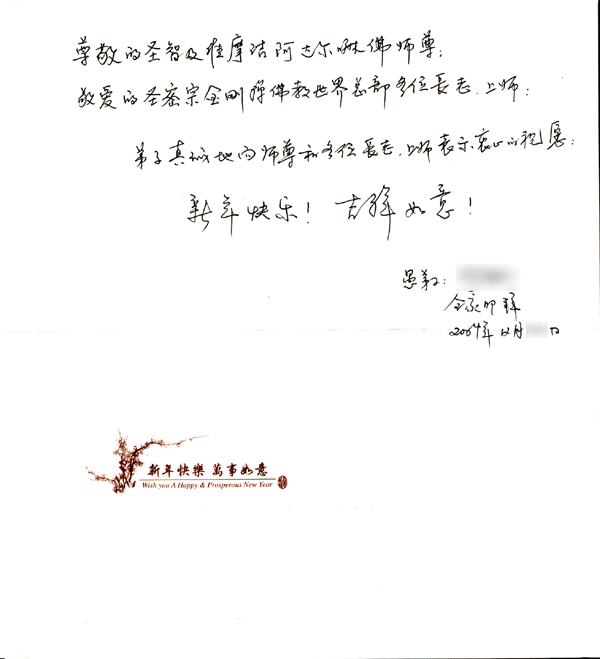 尊敬的圣智及维摩诘阿达尔嘛佛师尊：
敬爱的圣密宗金刚禅佛教世界总部各位長老、上师：
弟子真诚地向师尊和各位長老、上师表示衷心的祝愿：
新年快乐！ 吉祥如意！
愚弟子：
全家叩拜
2004年12月 日
新年快樂 萬事如意
Wish you A Happy & Prosperous New Year